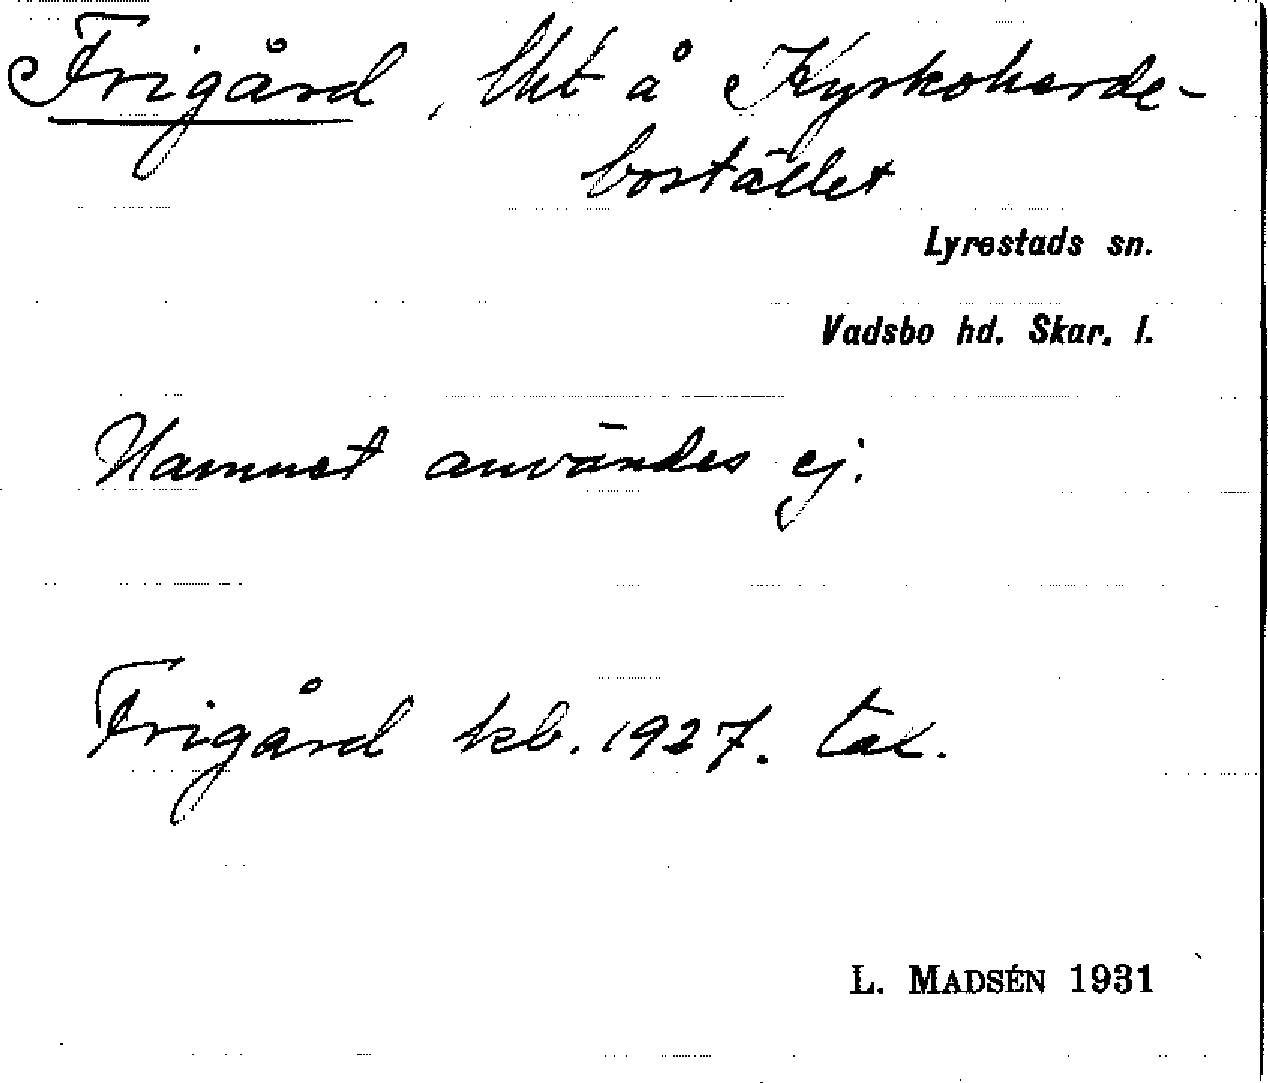 Frigård, lht å Kyrkoherde-
bostället
Lyrestads sn.
Vadsbo hd. Skar. l.
Namnet användes ej.
Frigård kb. 1927. tal.
L. MADSÉN 1931